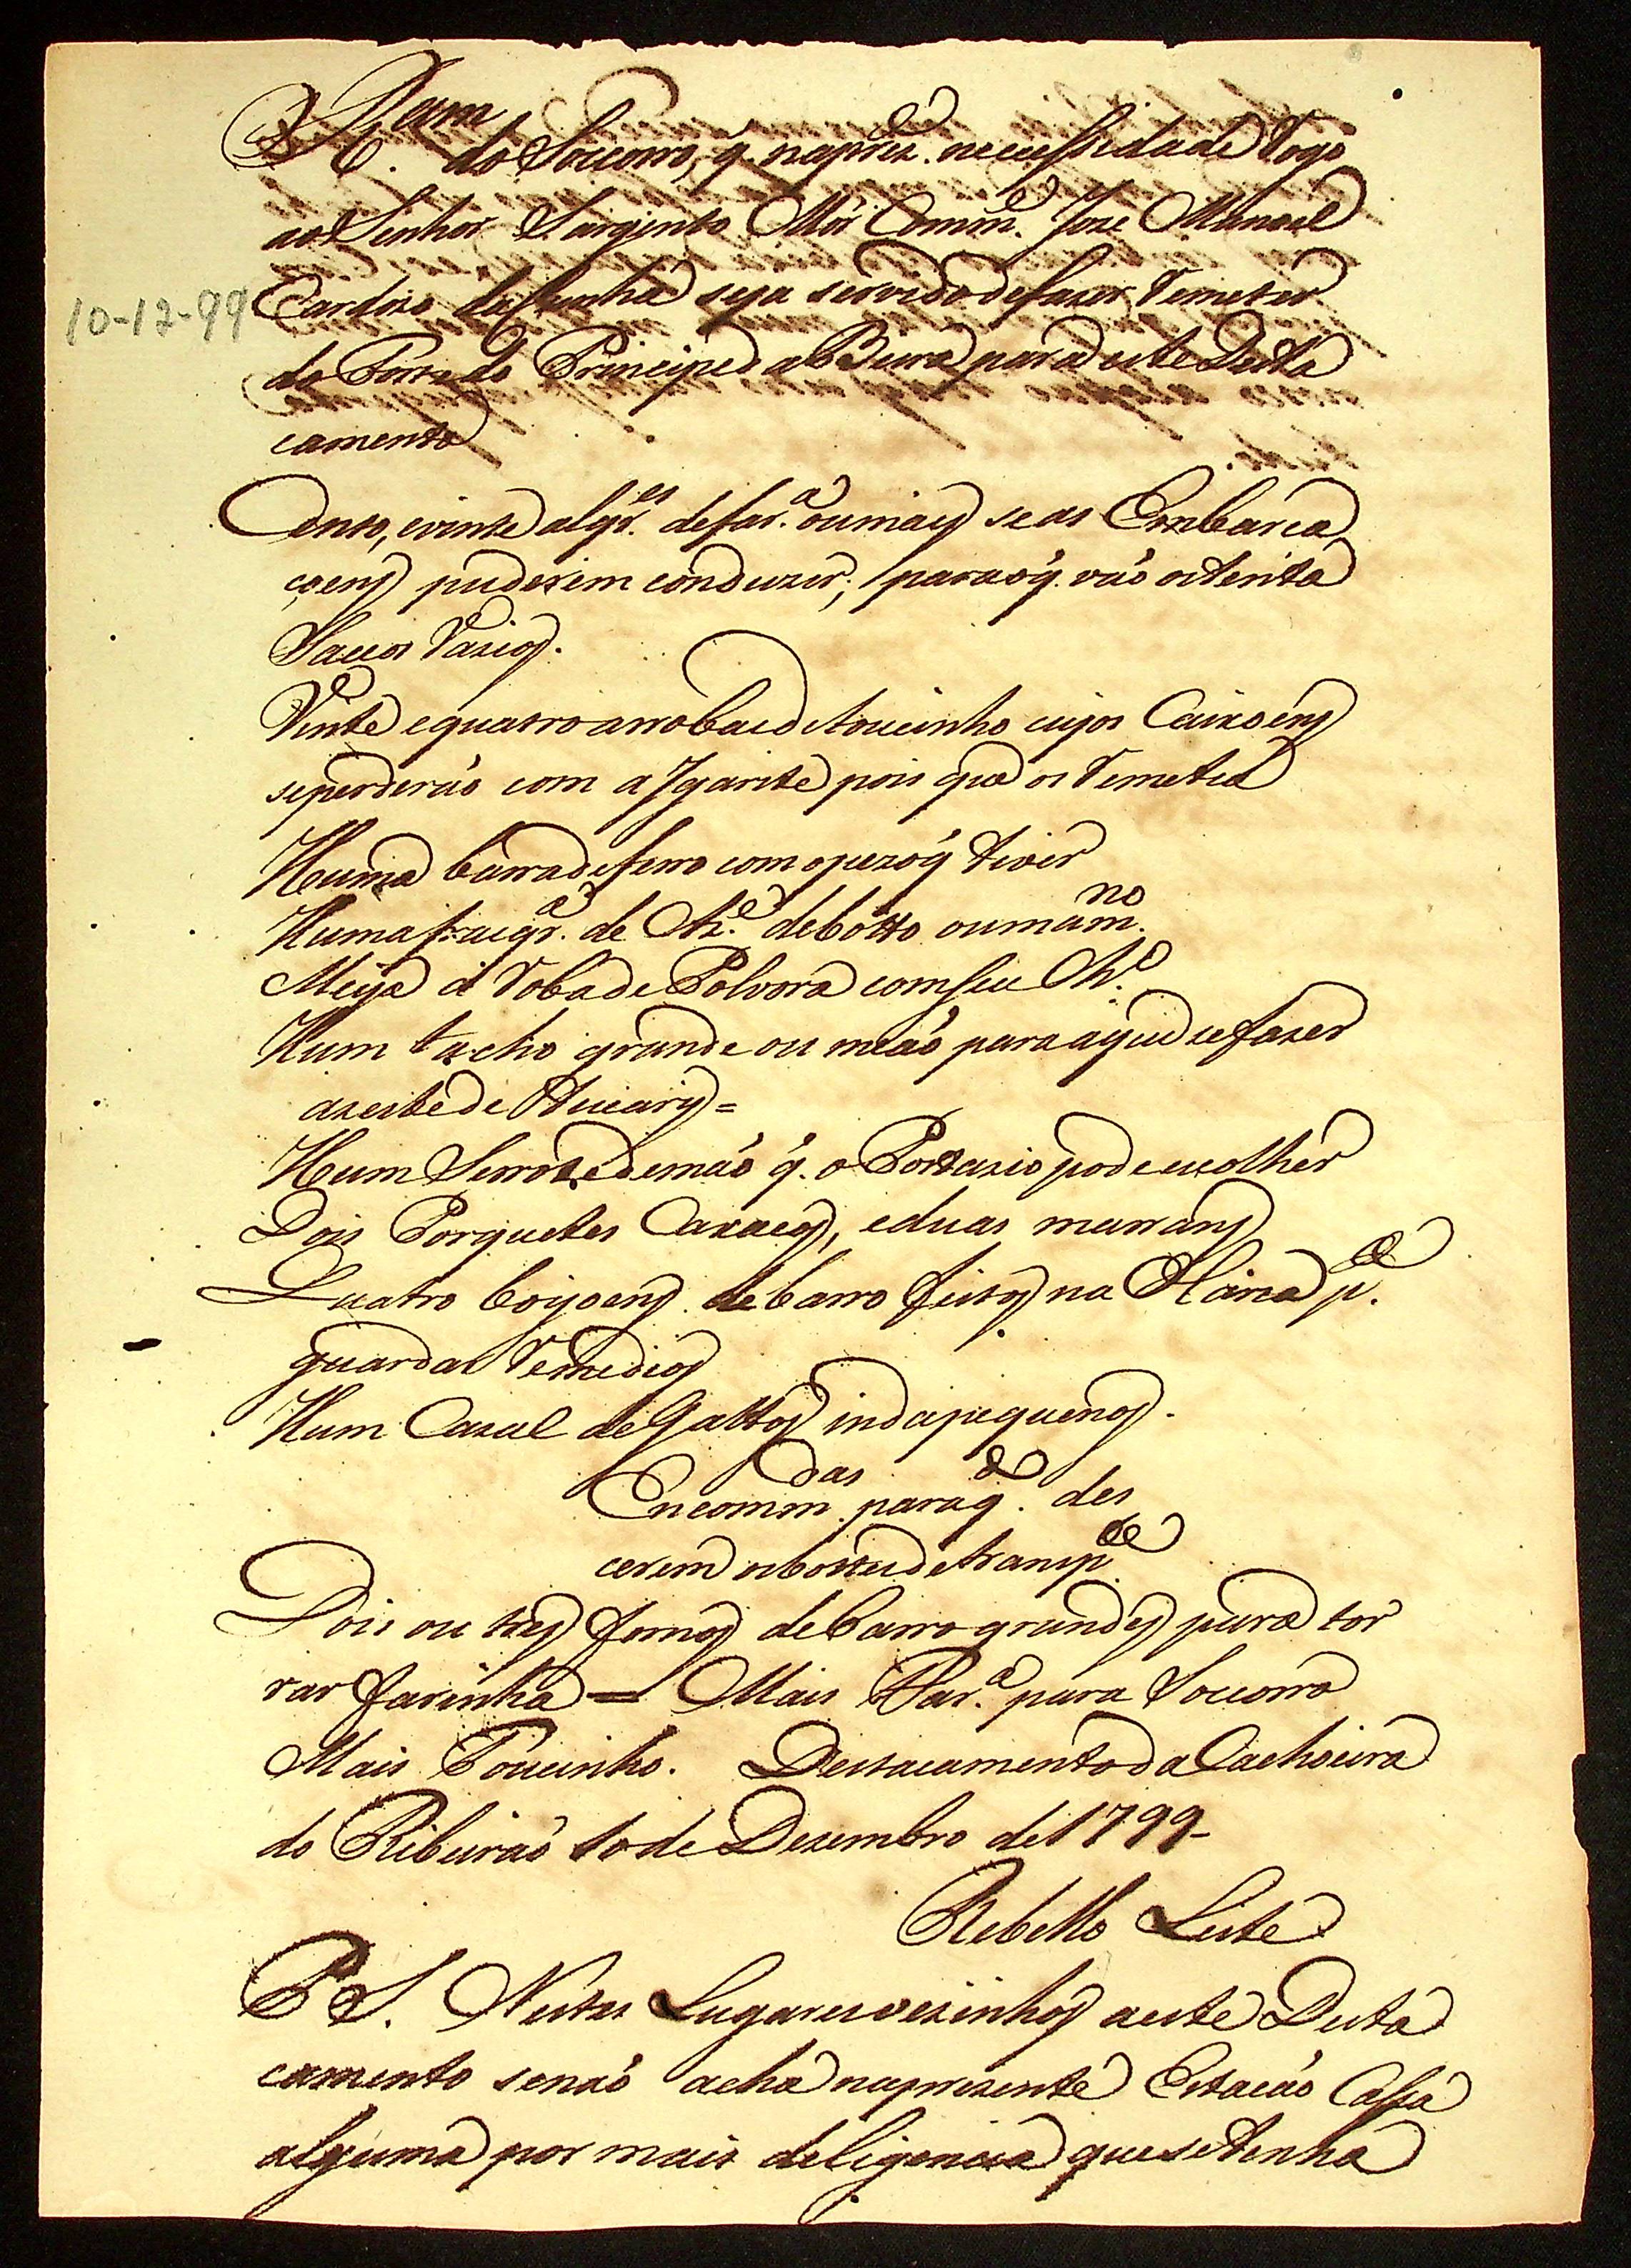 R.am do Socorro, q. na prez.e necessidade Rogo
ao Senhor Sargento Mór Comm.e Joze Manoel
10-12-99
Cardozo da Cunha seja servido de fazer Remeter
do Forte do Principe da Beira para este Desta
camento
Cento, e vinte alqr.es de far.a ou mais se as Embarca
çoens puderem conduzir; para o q. vaõ oitenta
Sacos Vazios.
Vinte e quatro arrobas de toucinho cujos Caixoens
se perderaõ com a Igarité pois que os Remeteo
Huma barra de ferro com o pezo q. tiver
Huma de Az.e de bôtto ou mam.no
Meya á Roba de Polvora com seu Ch.o
Hum tacho grande ou meaõ para aqui se fazer
azeite de Tucary =
Hum Serrote de maõ q. o Portario pode escolher
Dois Porquetes Caxaços, e duas marrans
Quatro boyoens de barro feitos na Olaria p.a
guardar Remedios
Hum Cazal de Gattos inda pequenos.
Encomm.das para q.do des
cerem os botes de transp.e
Dois ou tres fornos de barro grandes para tor
rar farinha = Mais Far.a para Socorro
Mais Toucinho. Destacamento da Cachoeira
do Ribeiraõ 10 de Dezembro de 1799-
Rebello Leite
P S. Nestes Lugares vezinhos a este Desta
camento se naõ acha na prezente Estacaõ Cassa
alguma por mais deligencia que se tenha